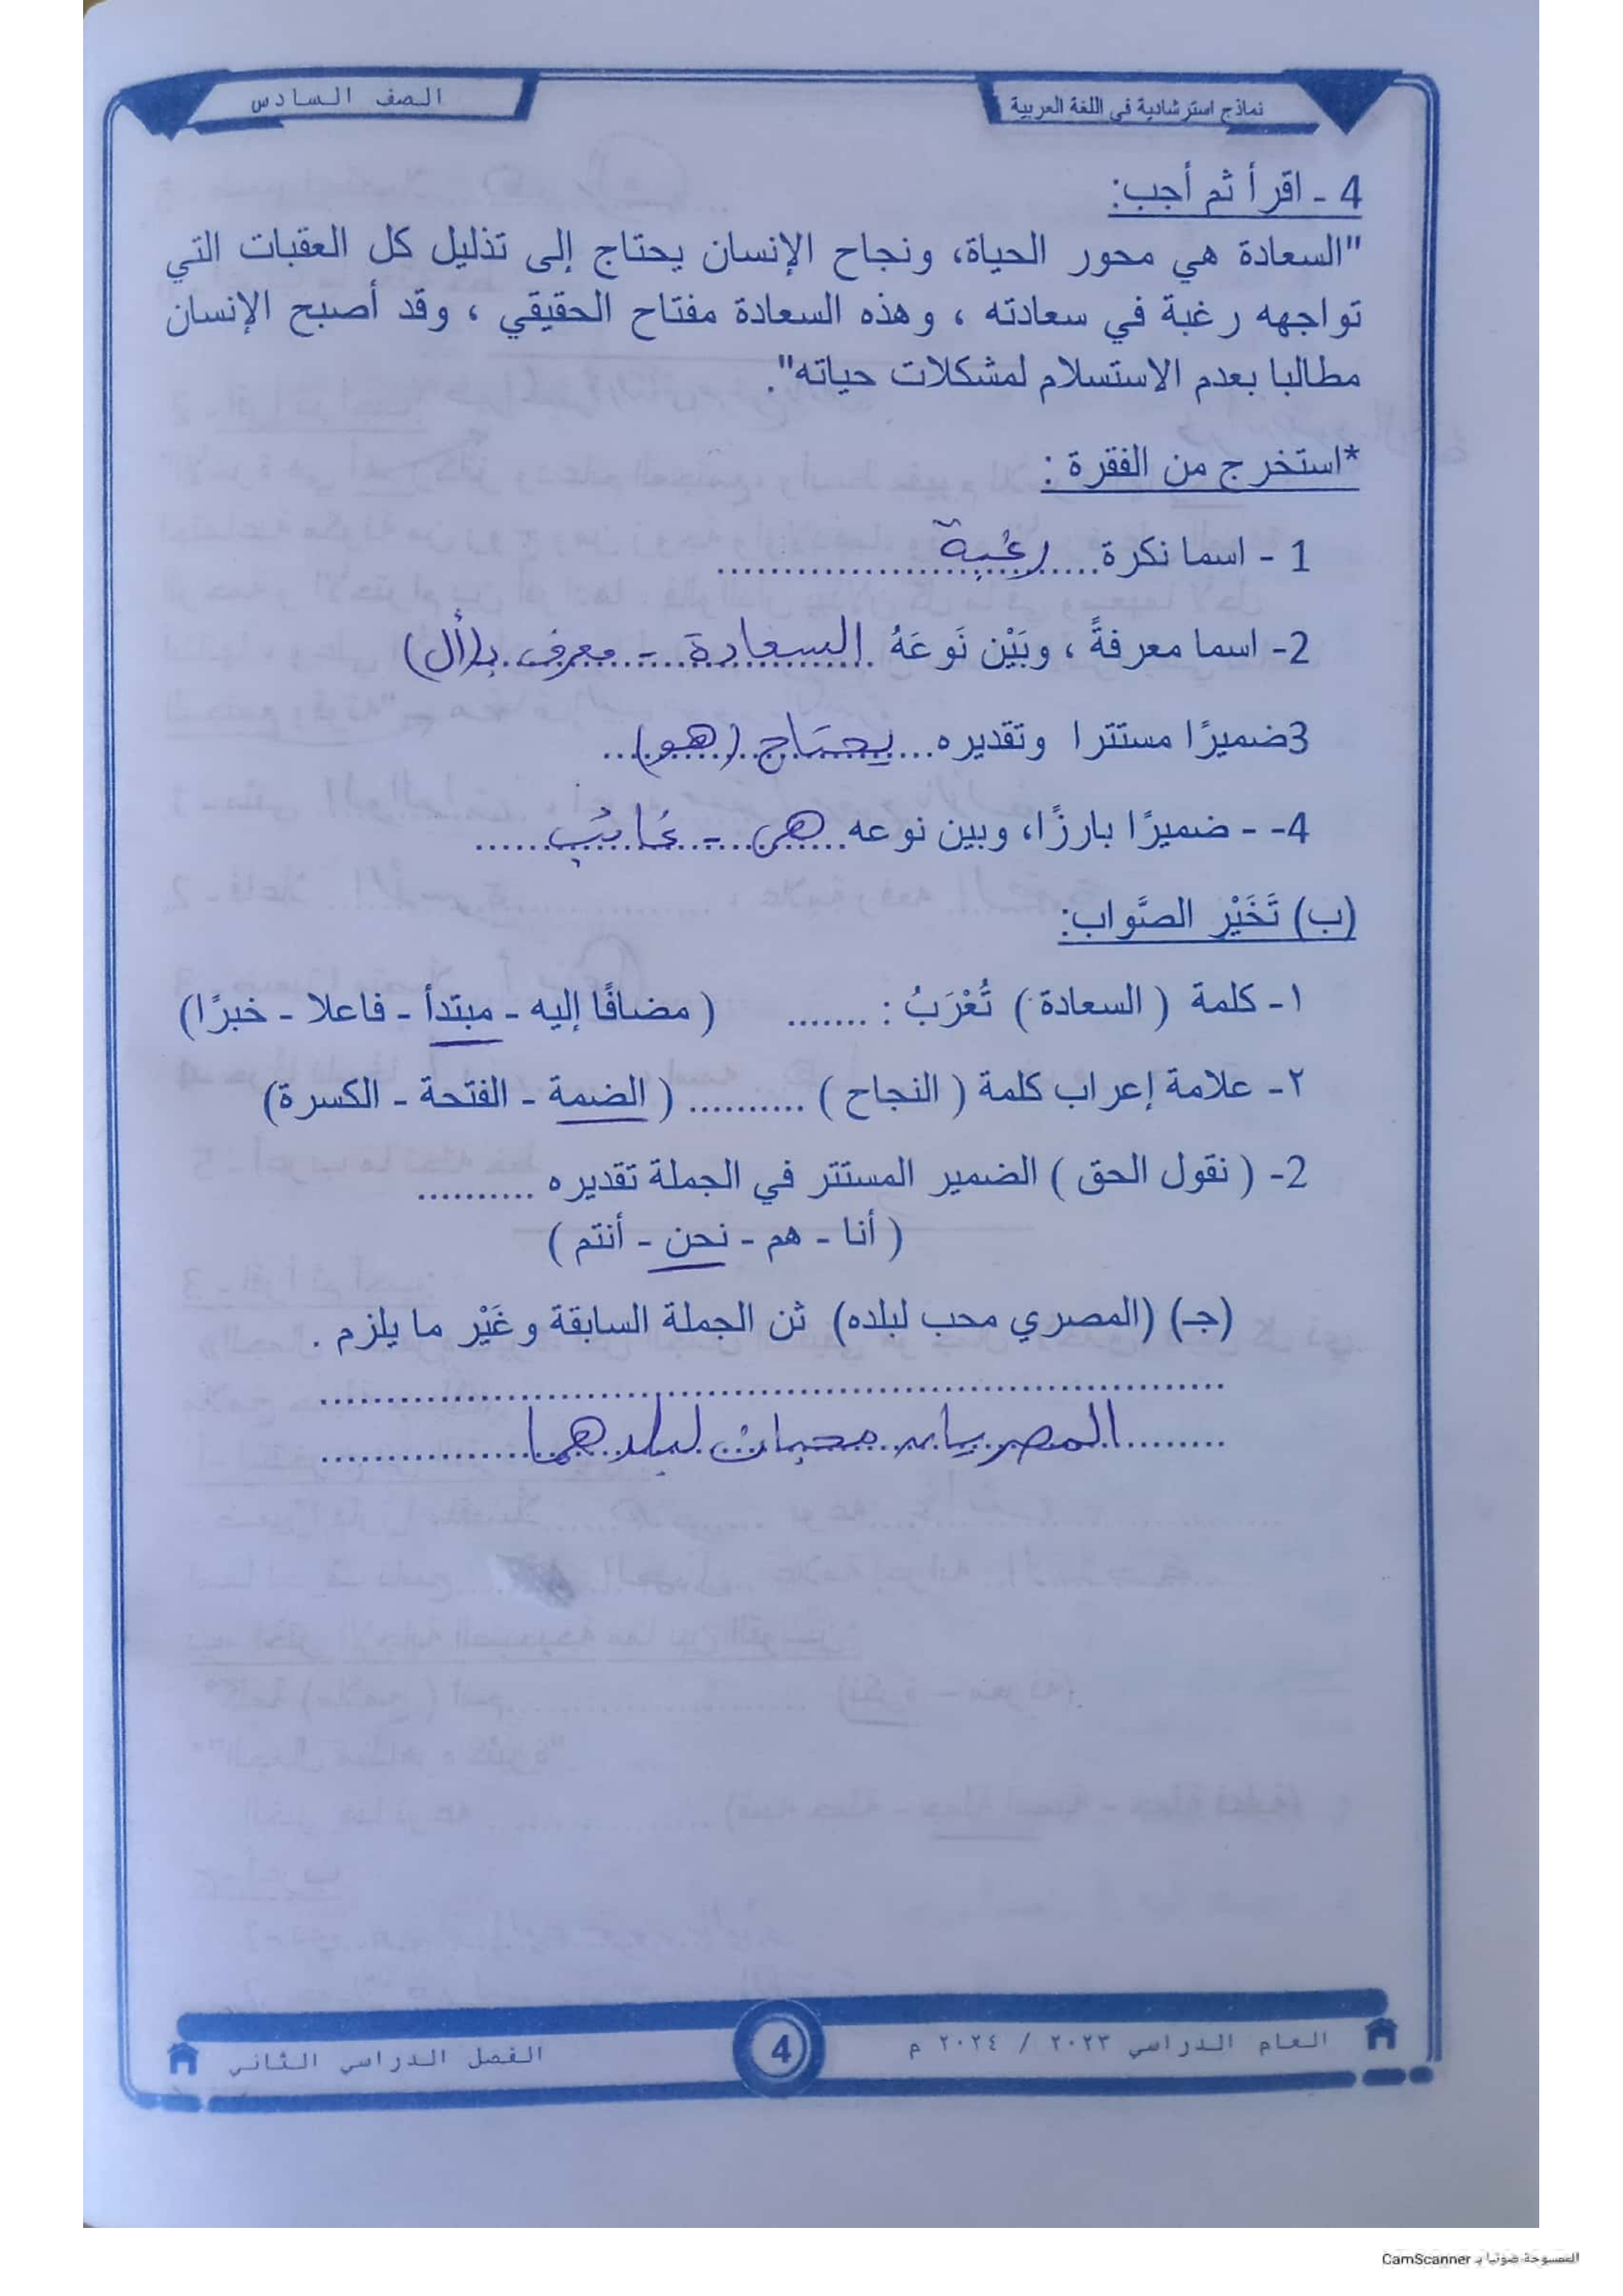 نماذج استرشادية في اللغة العربية
الصف السادس
4 - اقرأ ثم أجب:
"السعادة هي محور الحياة، ونجاح الإنسان يحتاج إلى تذليل كل العقبات التي
تواجهه رغبة في سعادته ، وهذه السعادة مفتاح الحقيقي ، وقد أصبح الإنسان
مطالبا بعدم الاستسلام لمشكلات حياته".
*استخرج من الفقرة :
1 - اسما نكرة.....رغبة.....
2- اسما معرفةً ، وبَيْن نَوعَهُ .السعادة - معرف بـ(أل)
3ضميرًا مستترا وتقديره...يحتاج (هو)...
4- - ضميرًا بارزًا، وبين نوعه...هي - غائب......
(ب) تَخَيْر الصَّواب:
١- كلمة ( السعادة ) تُعْرَبُ : ....... ( مضافًا إليه - مبتدأ - فاعلا - خبرًا)
٢- علامة إعراب كلمة ( النجاح ) .......... ( الضمة - الفتحة - الكسرة)
2- ( نقول الحق ) الضمير المستتر في الجملة تقديره ..........
( أنا - هم - نحن - أنتم )
(جـ) (المصري محب لبلده) ثن الجملة السابقة وغَيْر ما يلزم .
........المصريان محبان لبلدهما..............
العام الدراسي ٢٠٢٣ / ٢٠٢٤ م
4
الفصل الدراسي الثاني
الممسوحة ضوئيا بـ CamScanner